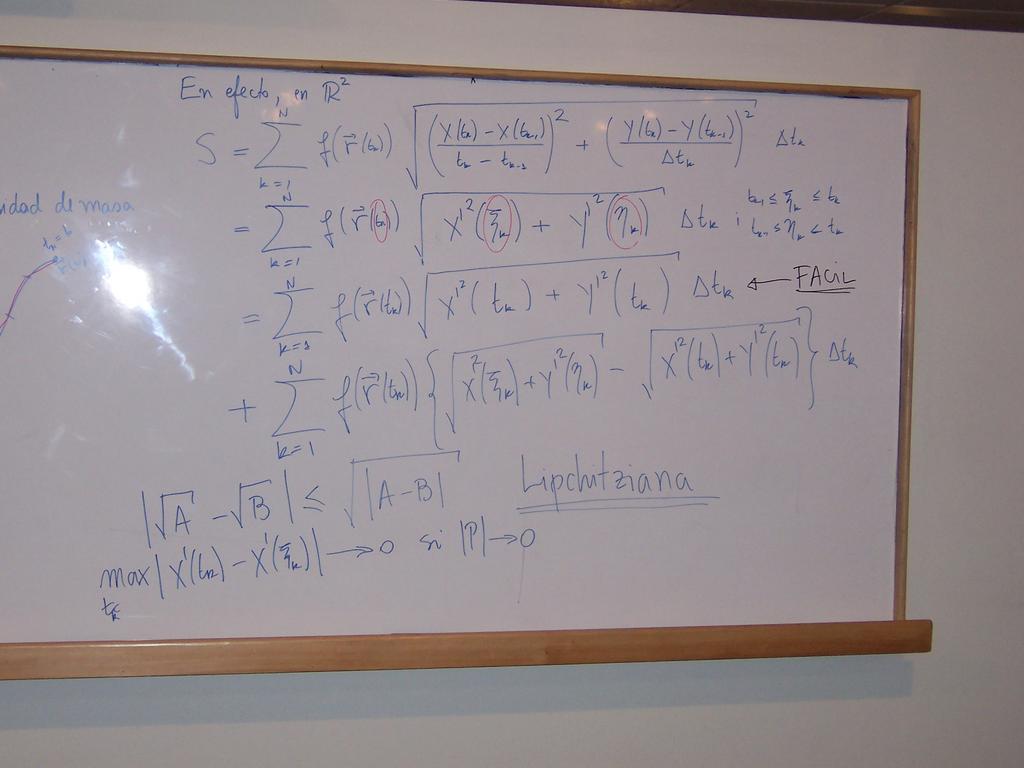 En efecto, en ℝ²
S = Σ_{k=1}^{N} f(r⃗(tₖ)) √( ((X(tₖ) - X(tₖ₋₁))/(tₖ - tₖ₋₁))² + ((Y(tₖ) - Y(tₖ₋₁))/Δtₖ)² ) Δtₖ
= Σ_{k=1}^{N} f(r⃗(tₖ)) √( X'²(ξₖ) + Y'²(ηₖ) ) Δtₖ ; tₖ₋₁ ≤ ξₖ ≤ tₖ
tₖ₋₁ ≤ ηₖ ≤ tₖ
idad de masa
tₙ = b
= Σ_{k=1}^{N} f(r⃗(tₖ)) √( X'²(tₖ) + Y'²(tₖ) ) Δtₖ ← FACIL
+ Σ_{k=1}^{N} f(r⃗(tₖ)) { √( X'²(ξₖ) + Y'²(ηₖ) ) - √( X'²(tₖ) + Y'²(tₖ) ) } Δtₖ
|√A - √B| ≤ √|A - B| Lipchitziana
max_{tₖ} |X'(tₖ) - X'(ξₖ)| → 0 si |P| → 0